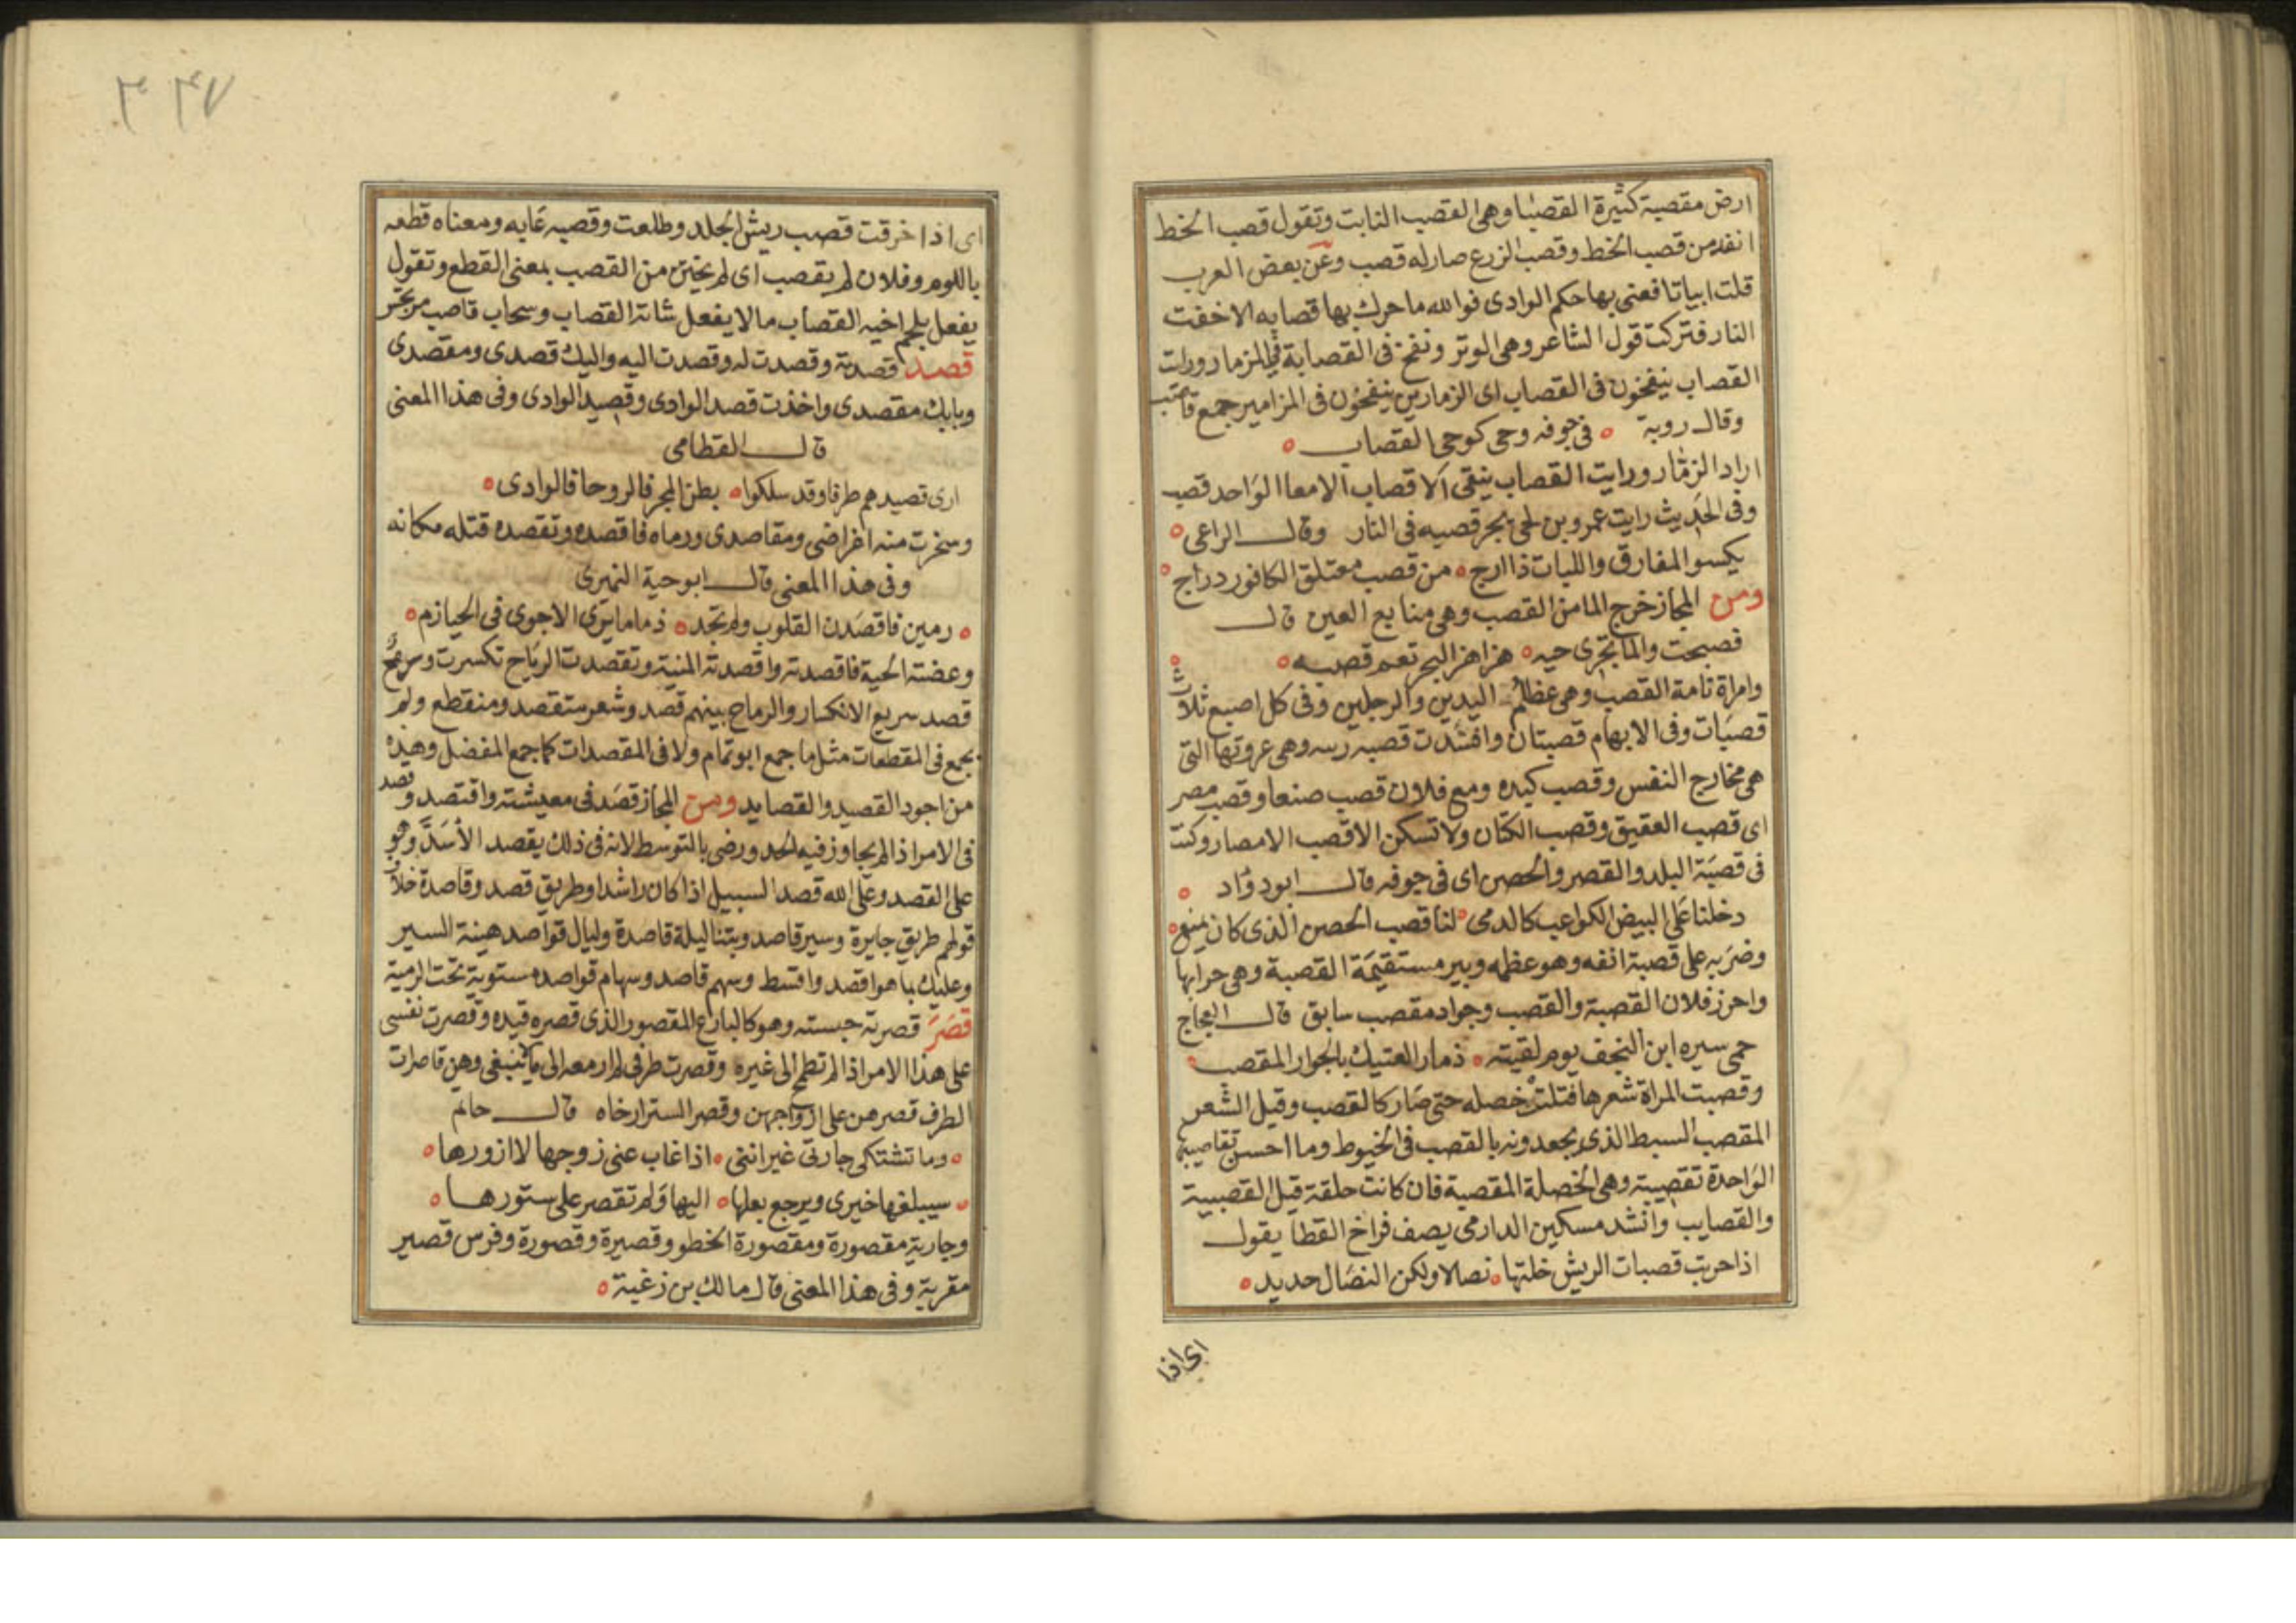 ارض مقصبة كثيرة القصبا وهى القصب النابت وتقول قصب الخط
انفد من قصب الخط وقصب الزرع صار له قصب وعن بعض العرب
قلت ابياتا فغنى بها حكم الوادى فوالله ما حرك بها قصابه الا خفت
النار فتركت قول الشاعر وهى الوتر ونفخ فى القصابة فى المزمار ورايت
القصاب ينفخون فى القصاب اى الزمارين ينفخون فى المزامير جمع قاصب
وقال روبة ه فى جوفه وحى كوحى القصاب ه
اراد الزمار ورايت القصاب ينقى الاقصاب الامعا الواحد قصب
وفى الحديث رايت عمرو بن لحى يجر قصبه فى النار وقال الراعى ه
يكسو المفارق واللبات ذا ارج ه من قصب معتلق الكافور دراج ه
ومن المجاز خرج الما من القصب وهى منابع العين قال
فصبحت والما يجرى حببه ه هزاهز البحر تعم قصبه ه
وامراة تامة القصب وهى عظام اليدين والرجلين وفى كل اصبع ثلاث
قصبات وفى الابهام قصبتان وانسدت قصبه رىىه وهى عروقها التى
هى مخارج النفس وقصب كبده ومع فلان قصب صنعا وقصب مصر
اى قصب العقيق وقصب الكتان ولا تسكن الا قصب الامصار وكنت
فى قصبة البلد والقصر والحصن اى فى جوفه قال ابو دؤاد ه
دخلنا على البيض الكواعب كالدمى ه لنا قصب الحصن الذى كان يمنع ه
وضربه على قصبة انفه وهو عظمه وبير مستقيمة القصبة وهى جرابها
واحرز فلان القصبة والقصب وجواد مقصب سابق قال العجاج
حمى سيره ابن النجف يوم لقيته ه ذمار العتيك بالجوار المقصب ه
وقصبت المراة شعرها فتلت خصله حتى صار كالقصب وقيل الشعر
المقصب السبط الذى يجعدونه بالقصب فى الخيوط وما احسن تقاصيبها
الواحدة تقصيبة وهى الخصلة المقصبة فان كانت حلقة قيل القصيبة
والقصايب وانشد مسكين الدارمى يصف فراخ القطا يقول
اذا حربت قصبات الريش خلتها ه نصالا ولكن النصال حديد ه
اى اذا
٣٣٧
اى اذا خرقت قصب ريش الجلد وطلعت وقصبه عابه ومعناه قطعه
باللوم وفلان لم يقصب اى لم يختن من القصب بمعنى القطع وتقول
يفعل بلحم اخيه القصاب ما لا يفعل شاته القصاب وسحاب قاصب مرتجز
قصد قصدته وقصدت له وقصدت اليه واليك قصدى ومقصدى
وبابك مقصدى واخذت قصد الوادى وقصيد الوادى وفى هذا المعنى
قال القطامى
ارى قصيدهم طرفا وقد سلكوا ه بطن المجر فالروحا فالوادى ه
وسخرت منه اغراضى ومقاصدى ورماه فاقصده وتقصده قتله مكانه
وفى هذا المعنى قال ابو حية النميرى
ه رمين فاقصدن القلوب ولم تجد ه ذماما يرى الا جوى فى الحيازم ه
وعضته الحية فاقصدته واقصدته المنية وتقصدت الرماح تكسرت ورمح
قصد سريع الانكسار والرماح بينهم قصد وشعر متقصد ومنقطع ولم
يجمع فى المقطعات مثل ما جمع ابو تمام ولا فى المقصدات كما جمع المفضل وهذه
من اجود القصيد والقصايد ومن المجاز قصد فى معيشته واقتصد وقصد
فى الامر اذا لم يجاوز فيه الحد ورضى بالتوسط لانه فى ذلك يقصد الاسد وهو
على القصد وعلى الله قصد السبيل اذا كان راشدا وطريق قصد وقاصدة خلاف
قولهم طريق جايرة وسير قاصد وبتنا ليلة قاصدة وليال قواصد هينة السير
وعليك بما هو اقصد واقسط وسهم قاصد وسهام قواصد مستوية تحت الرمية
قصر قصرته حبسته وهو كالبازع المقصور الذى قصره قيده وقصرت نفسى
على هذا الامر اذا لم تطمح الى غيره وقصرت طرفى لم ارمعه الى ما لا ينبغى وهن قاصرات
الطرف قصرهن على ازواجهن وقصر الستر ارخاه قال حاتم
ه وما تشتكى جارتى غير اننى ه اذا غاب عنى زوجها لا ازورها ه
ه سيبلغها خيرى ويرجع بعلها ه اليها ولم تقصر على ستورها ه
وجارية مقصورة ومقصورة الخطو وقصيرة وقصورة وفرس قصير
مقربة وفى هذا المعنى قال مالك بن زغبة ه